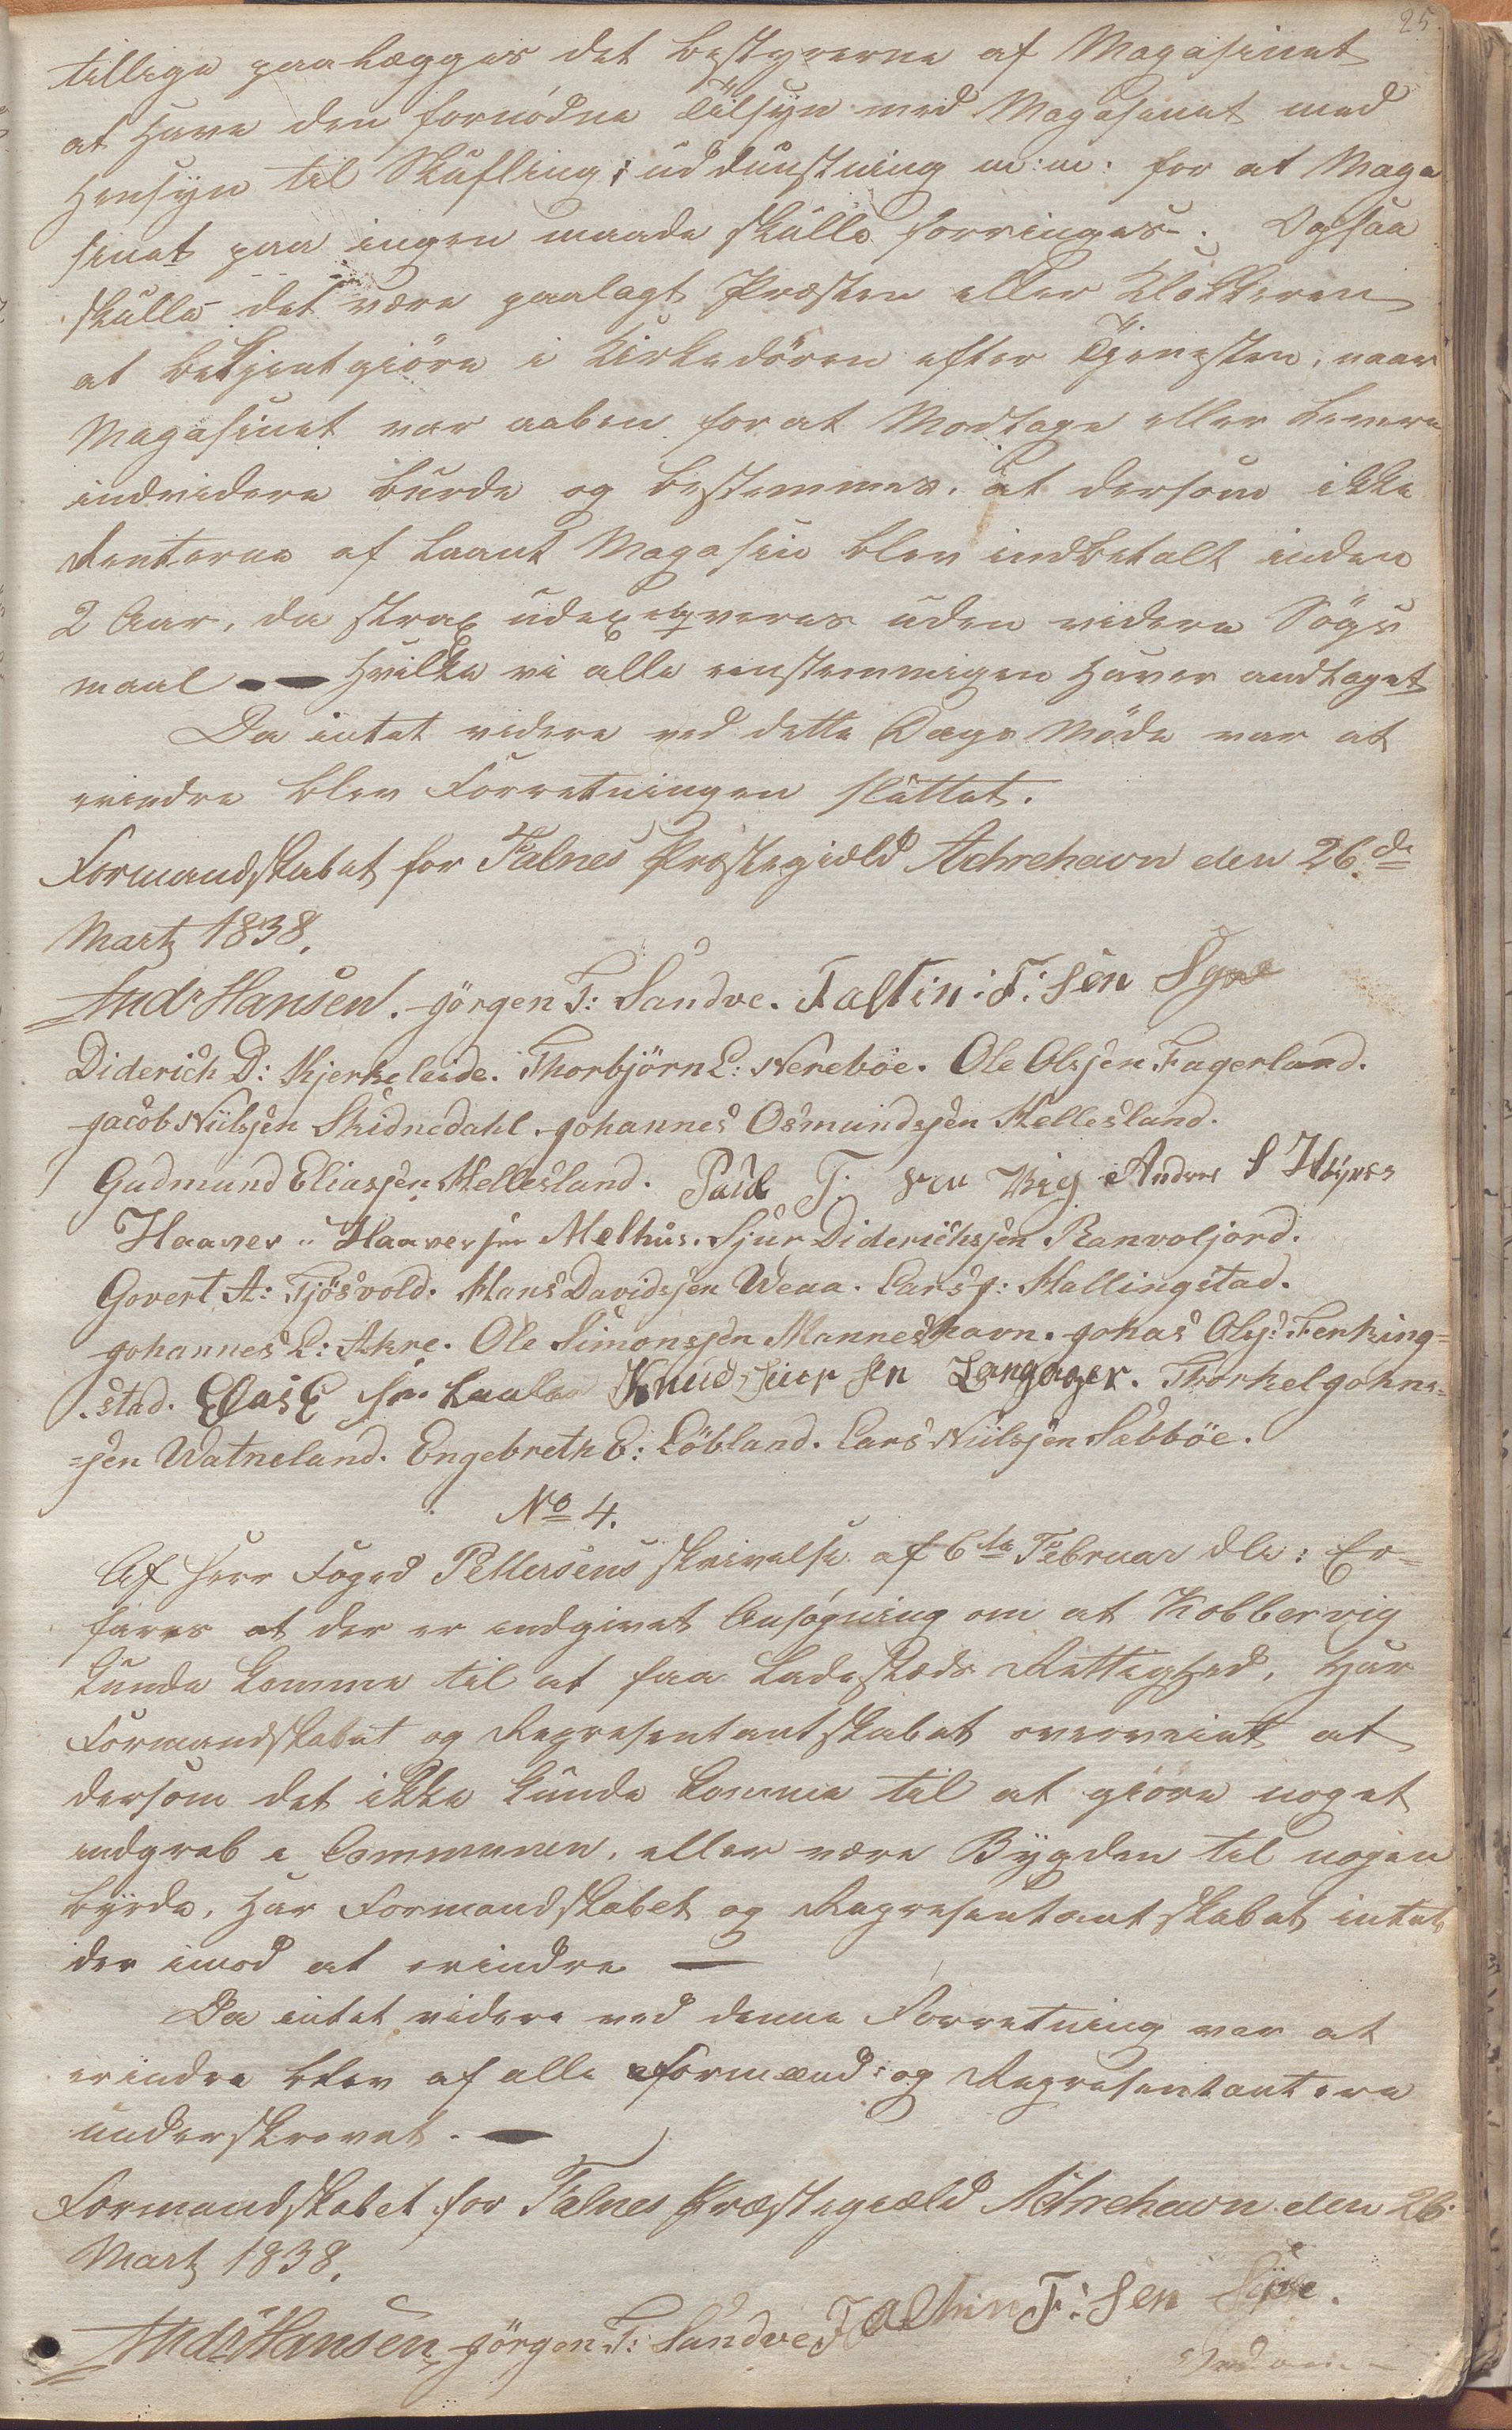 25.
tillige paalægges det bestyrerne af Magasinet
at have den fornødne Tilsyn med Magasinet med
Hensyn til Skufling; uddunstning m:m: for at Maga
sinet paa ingen maade skulle forringes. Ogsaa
skulle det være paalagt Præsten eller Klokkeren
at bekjentgiöre i Kirkedören efter Tjenesten, naar
Magasinet var aaben for at Modtage eller Levere
indvidere burde og bestemmes, at dersom ikke
Renterne af laant Magasin blev indbetalt inden
2 Aar, da strax udexeqveres uden videre Sögs
maal — Hvilke vi alle eenstemmigen haver andtaget
Da intet videre ved dette Dags Möde var at
erindre blev Forretningen sluttet.
Formandskabet for Falnes Præstegield Achrehavn den 26de
Martz 1838.
Andr Hansen. Jörgen T: Sandve. Faltin: F: Sen Syre
Diderich D: Kjerkeleide. Thorbjörn L: Nereböe. Ole Olsjen Fagerland.
Jacob Niilsjen Skidnedahl. Johannes Osmundsjen Hellesland.
Gudmund Eliasjen Mellesland. Paul T. Sen Vig Anders S Höynes
Haaver Haaversen Melhus. Sjur Diderichsjen Ranvoljord.
Govert A: Tjösvold. Hans Davidsjen Weaa. Lars J: Hallingstad.
Johannes L: Ahre. Ole Simonsjen Manneshavn. Johas Olsj: Ferking=
stad. Elas E Sen Knud Siver Sen Langager. Thorkel Johns=
=sjen Watneland. Engebreth E: Löbland. Lars Niilsjen Sæbböe.
No 4.
Af Herr Foged Petersens skrivelse af 6te Februar dle: Er=
fares at der er indgivet Ansøgning om at Kobbervig
kunde komme til at faa Ladesteds Rettighed, har
Formandskabet og Representantskabet overveiet at
dersom det ikke kunde komme til at giöre noget
indgreb i Communen, eller være Bygden til nogen
byrde, har Formandskabet og Representantskabet intet
der imod at erindre —
Da intet videre ved denne Forretning var at
erindre blev af alle Formænd og Representantere
underskrevet. —
Formandskabet for Falnes Præstegiæld Achrehavn den 26
Martz 1838.
Andr Hansen Jörgen T: Sandve Faltin F: Sen Syre.